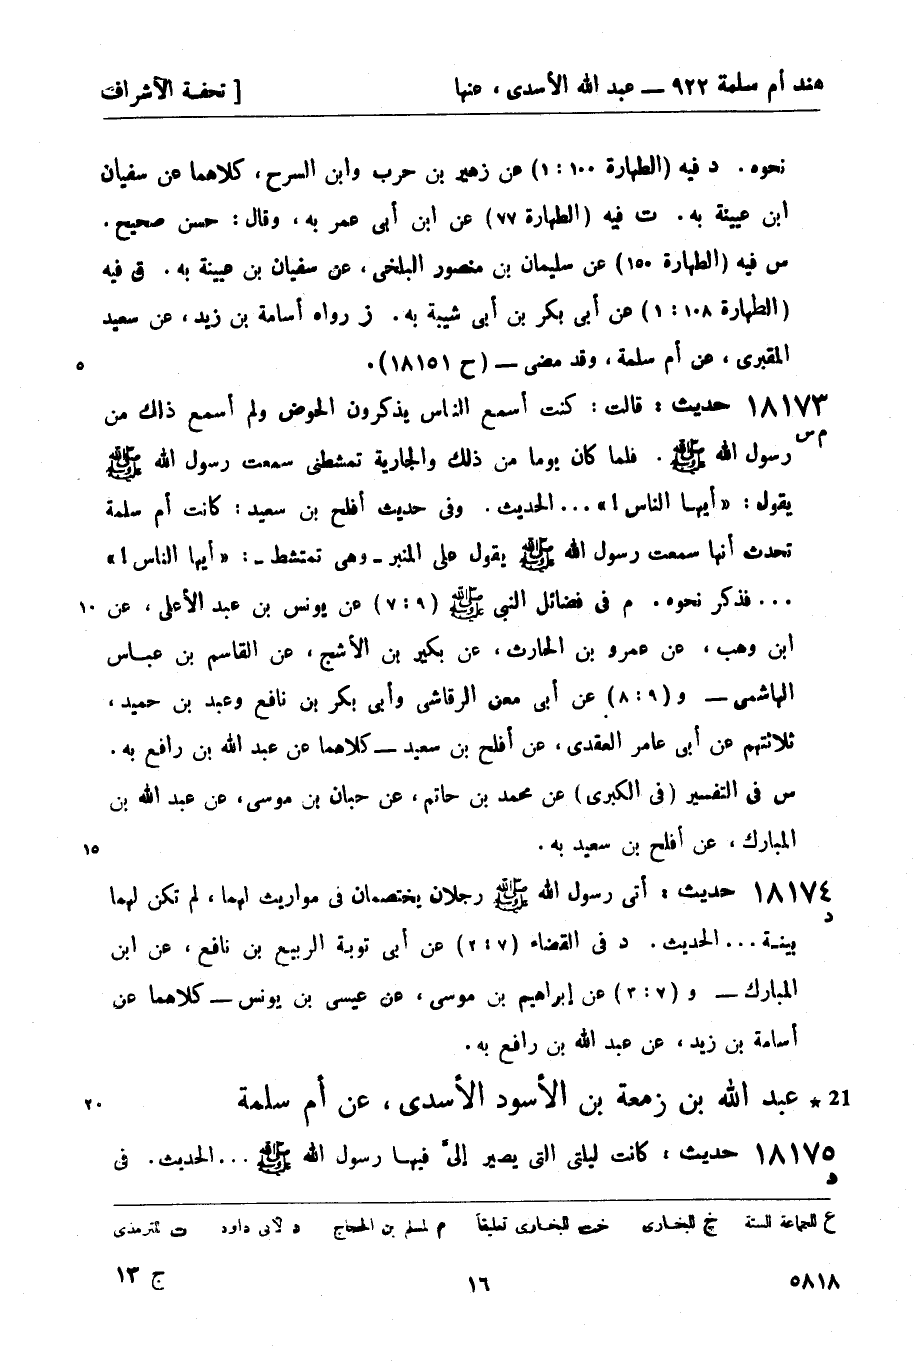 هند أم سلمة ٩٢٢ — عبد الله الأسدى ، عنها [ تحفة الأشراف
نحوه . د فيه (الطهارة ١٠٠ : ١) عن زهير بن حرب وابن السرح ، كلاهما عن سفيان
ابن عيينة به . ت فيه (الطهارة ٧٧) عن ابن أبى عمر به ، وقال : حسن صحيح .
س فيه (الطهارة ١٥٠) عن سليمان بن منصور البلخى ، عن سفيان بن عيينة به . ق فيه
(الطهارة ١٠٨ : ١) عن أبى بكر بن أبى شيبة به . ز رواه أسامة بن زيد ، عن سعيد
المقبرى ، عن أم سلمة ، وقد مضى — (ح ١٨١٥١) . ٥
١٨١٧٣ حديث : قالت : كنت أسمع الناس يذكرون الحوض ولم أسمع ذاك من
م س
رسول الله ﷺ . فلما كان يوما من ذلك والجارية تمشطنى سمعت رسول الله ﷺ
يقول : «أيها الناس !» ... الحديث . وفى حديث أفلح بن سعيد : كانت أم سلمة
تحدث أنها سمعت رسول الله ﷺ يقول على المنبر ـ وهى تمتشط ـ : «أيها الناس !»
... فذكر نحوه . م فى فضائل النبى ﷺ (٩ : ٧) عن يونس بن عبد الأعلى ، عن ١٠
ابن وهب ، عن عمرو بن الحارث ، عن بكير بن الأشج ، عن القاسم بن عباس
الهاشمى — و (٩ : ٨) عن أبى معن الرقاشى وأبى بكر بن نافع وعبد بن حميد ،
ثلاثتهم عن أبى عامر العقدى ، عن أفلح بن سعيد — كلاهما عن عبد الله بن رافع به .
س فى التفسير (فى الكبرى) عن محمد بن حاتم ، عن حبان بن موسى ، عن عبد الله بن
المبارك ، عن أفلح بن سعيد به . ١٥
١٨١٧٤ حديث : أتى رسول الله ﷺ رجلان يختصمان فى مواريث لهما ، لم تكن لهما
د
بينة ... الحديث . د فى القضاء (٧ : ٢) عن أبى توبة الربيع بن نافع ، عن ابن
المبارك — و (٧ : ٣) عن إبراهيم بن موسى ، عن عيسى بن يونس — كلاهما عن
أسامة بن زيد ، عن عبد الله بن رافع به .
21 * عبد الله بن زمعة بن الأسود الأسدى ، عن أم سلمة ٢٠
١٨١٧٥ حديث : كانت ليلتى التى يصير إلىَّ فيها رسول الله ﷺ ... الحديث . فى
د
ع للجماعة الستة خ للبخارى خت للبخارى تعليقاً م لمسلم بن الحجاج د لأبى داود ت للترمذى
٥٨١٨ ١٦ ج ١٣